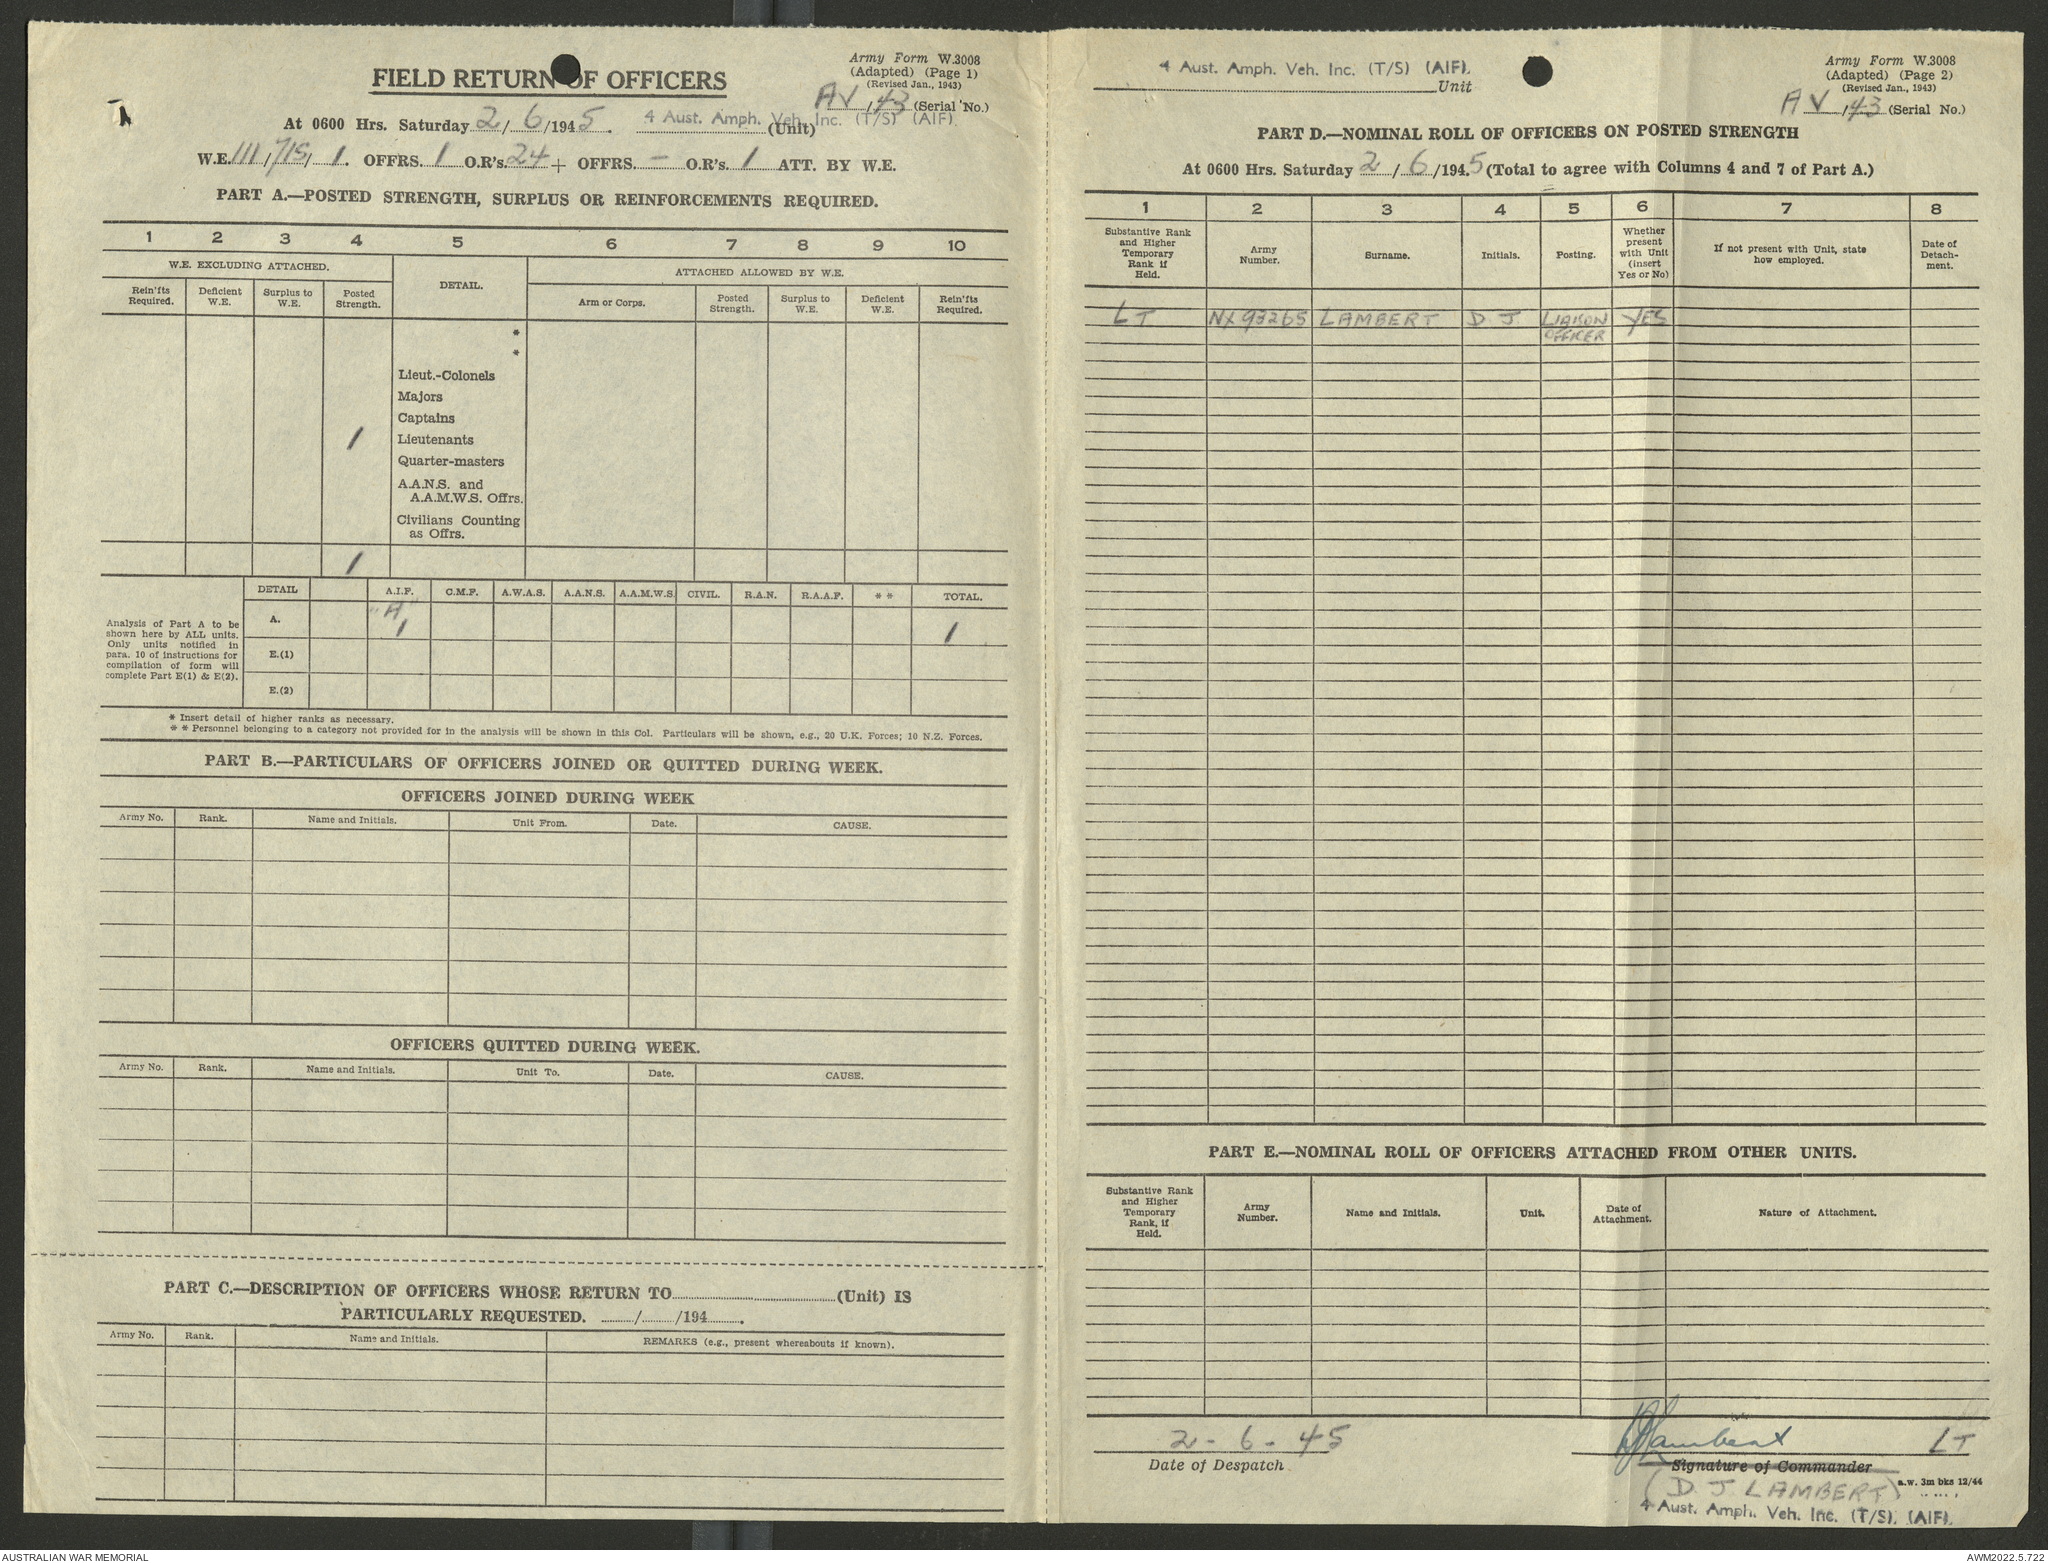 FIELD RETURN OF OFFICERS
Army Form W.3008
(Adapted) (Page 1)
(Revised Jan., 1943)
AV/43 (Serial No.)
At 0600 Hrs. Saturday 2/6/1945. 4 Aust. Amph. Veh. Inc. (T/S) (AIF). (Unit)
W.E. III/715/1. OFFRS. 1 O.R's. 24 + OFFRS. — O.R's. 1 ATT. BY W.E.
PART A.—POSTED STRENGTH, SURPLUS OR REINFORCEMENTS REQUIRED.
1 2 3 4 5 6 7 8 9 10
W.E. EXCLUDING ATTACHED. DETAIL. ATTACHED ALLOWED BY W.E.
Rein'fts Required. Deficient W.E. Surplus to W.E. Posted Strength. Arm or Corps. Posted Strength. Surplus to W.E. Deficient W.E. Rein'fts Required.
*
*
Lieut.-Colonels
Majors
Captains
1 Lieutenants
Quarter-masters
A.A.N.S. and
A.A.M.W.S. Offrs.
Civilians Counting
as Offrs.
1
DETAIL A.I.F. C.M.F. A.W.A.S. A.A.N.S. A.A.M.W.S. CIVIL. R.A.N. R.A.A.F. * * TOTAL.
Analysis of Part A to be
shown here by ALL units.
Only units notified in
para. 10 of instructions for
compilation of form will
complete Part E(1) & E(2).
A. "A" 1 1
E.(1)
E.(2)
* Insert detail of higher ranks as necessary.
* * Personnel belonging to a category not provided for in the analysis will be shown in this Col. Particulars will be shown, e.g., 20 U.K. Forces; 10 N.Z. Forces.
PART B.—PARTICULARS OF OFFICERS JOINED OR QUITTED DURING WEEK.
OFFICERS JOINED DURING WEEK
Army No. Rank. Name and Initials. Unit From. Date. CAUSE.
OFFICERS QUITTED DURING WEEK.
Army No. Rank. Name and Initials. Unit To. Date. CAUSE.
PART C.—DESCRIPTION OF OFFICERS WHOSE RETURN TO (Unit) IS
PARTICULARLY REQUESTED. / /194 .
Army No. Rank. Name and Initials. REMARKS (e.g., present whereabouts if known).
4 Aust. Amph. Veh. Inc. (T/S) (AIF).
Unit
Army Form W.3008
(Adapted) (Page 2)
(Revised Jan., 1943)
AV/43 (Serial No.)
PART D.—NOMINAL ROLL OF OFFICERS ON POSTED STRENGTH
At 0600 Hrs. Saturday 2/6/1945 (Total to agree with Columns 4 and 7 of Part A.)
1 2 3 4 5 6 7 8
Substantive Rank and Higher Temporary Rank if Held. Army Number. Surname. Initials. Posting. Whether present with Unit (insert Yes or No) If not present with Unit, state how employed. Date of Detach-ment.
LT NX93265 LAMBERT D J LIAISON OFFICER YES
PART E.—NOMINAL ROLL OF OFFICERS ATTACHED FROM OTHER UNITS.
Substantive Rank and Higher Temporary Rank, if Held. Army Number. Name and Initials. Unit. Date of Attachment. Nature of Attachment.
2-6-45
Date of Despatch
DJLambert LT
Signature of Commander
(D. J. LAMBERT)
a.w. 3m bks 12/44
4 Aust. Amph. Veh. Inc. (T/S). (AIF).
AUSTRALIAN WAR MEMORIAL
AWM2022.5.722